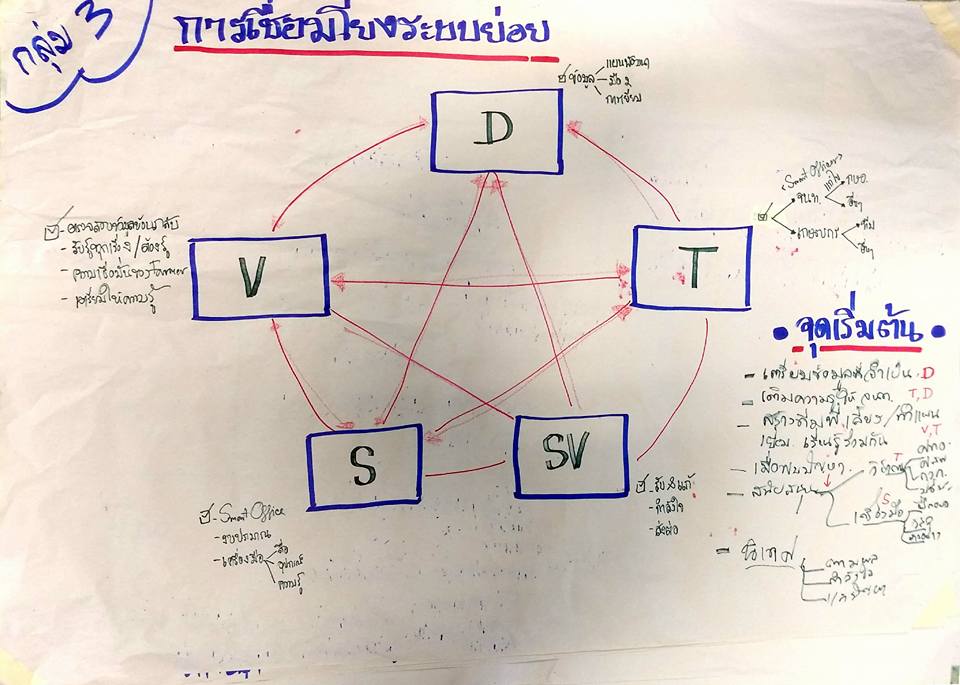 กลุ่ม 3
การเชื่อมโยงระบบย่อย
D
ข้อมูล
แผนพัฒนา
มือ 2
การเยี่ยม
V
ตรวจสอบข้อมูลย้อนกลับ
- รับรู้ทุกเรื่อง/ต้องรู้
- ความเชื่อมั่นของ Farmer
- เตรียมให้ความรู้
T
Smart Officer
จนท.
เกษตรกร
ทีม
อื่นๆ
S
Smart Office
- งบประมาณ
- เครื่องมือ
สื่อ
อุปกรณ์
ความรู้
SV
- กำลังใจ
- ส่งต่อ
• จุดเริ่มต้น •
- เตรียมข้อมูลที่จำเป็น D
- เติมความรู้ให้ จนท. T, D
- สร้างทีมพี่เลี้ยง/ทำแผน
เยี่ยม เรียนรู้ร่วมกัน V, T
- เมื่อพบปัญหา
- สนับสนุน
T
S
เครื่องมือ
- นิเทศ
ตามผล
กำลังใจ
แก้ปัญหา